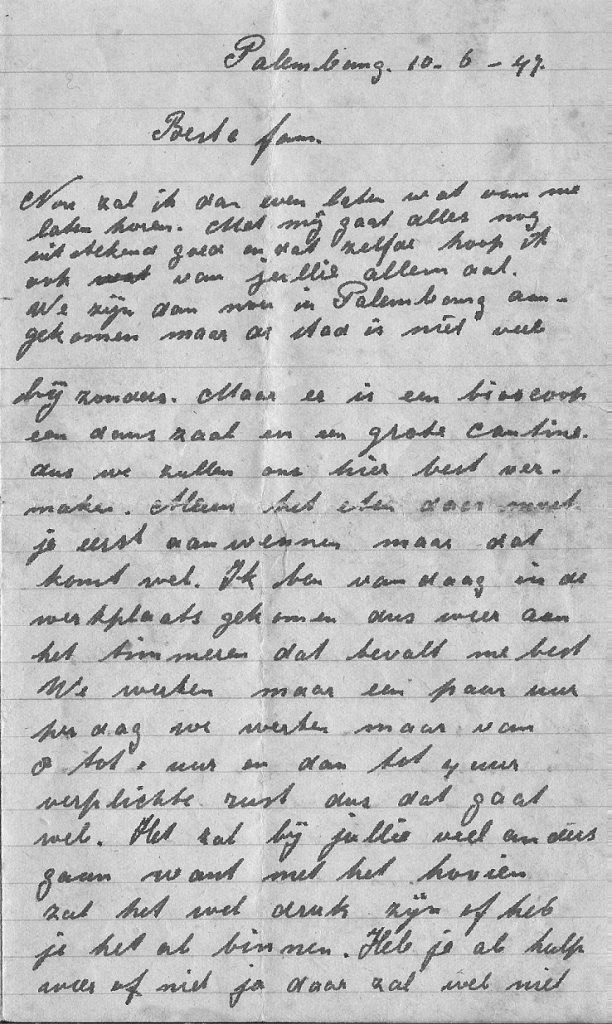 Palembang. 10-6-47.
Beste fam.
Nou zal ik dan even laten wat van me
laten horen. Met mij gaat alles nog
uitstekend goed en dat zelfde hoop ik
ook van jullie allemaal.
We zijn dan nou in Palembang aan-
gekomen maar de stad is niet veel
bijzonders. Maar er is een bioscoop
een dans zaal en een grote cantine.
dus we zullen ons hier best ver-
maken. Alleen het eten daar moet
je eerst aan wennen maar dat
komt wel. Ik ben vandaag in de
werkplaats gekomen dus weer aan
het timmeren dat bevalt me best
We werken maar een paar uur
per dag we werken maar van
8 tot uur en dan tot 4 uur
verplichte rust dus dat gaat
wel. Het zal bij jullie veel anders
gaan want met het hooien
zal het wel druk zijn of heb
je het al binnen. Heb je al hulp
weer of niet ja daar zal wel niet